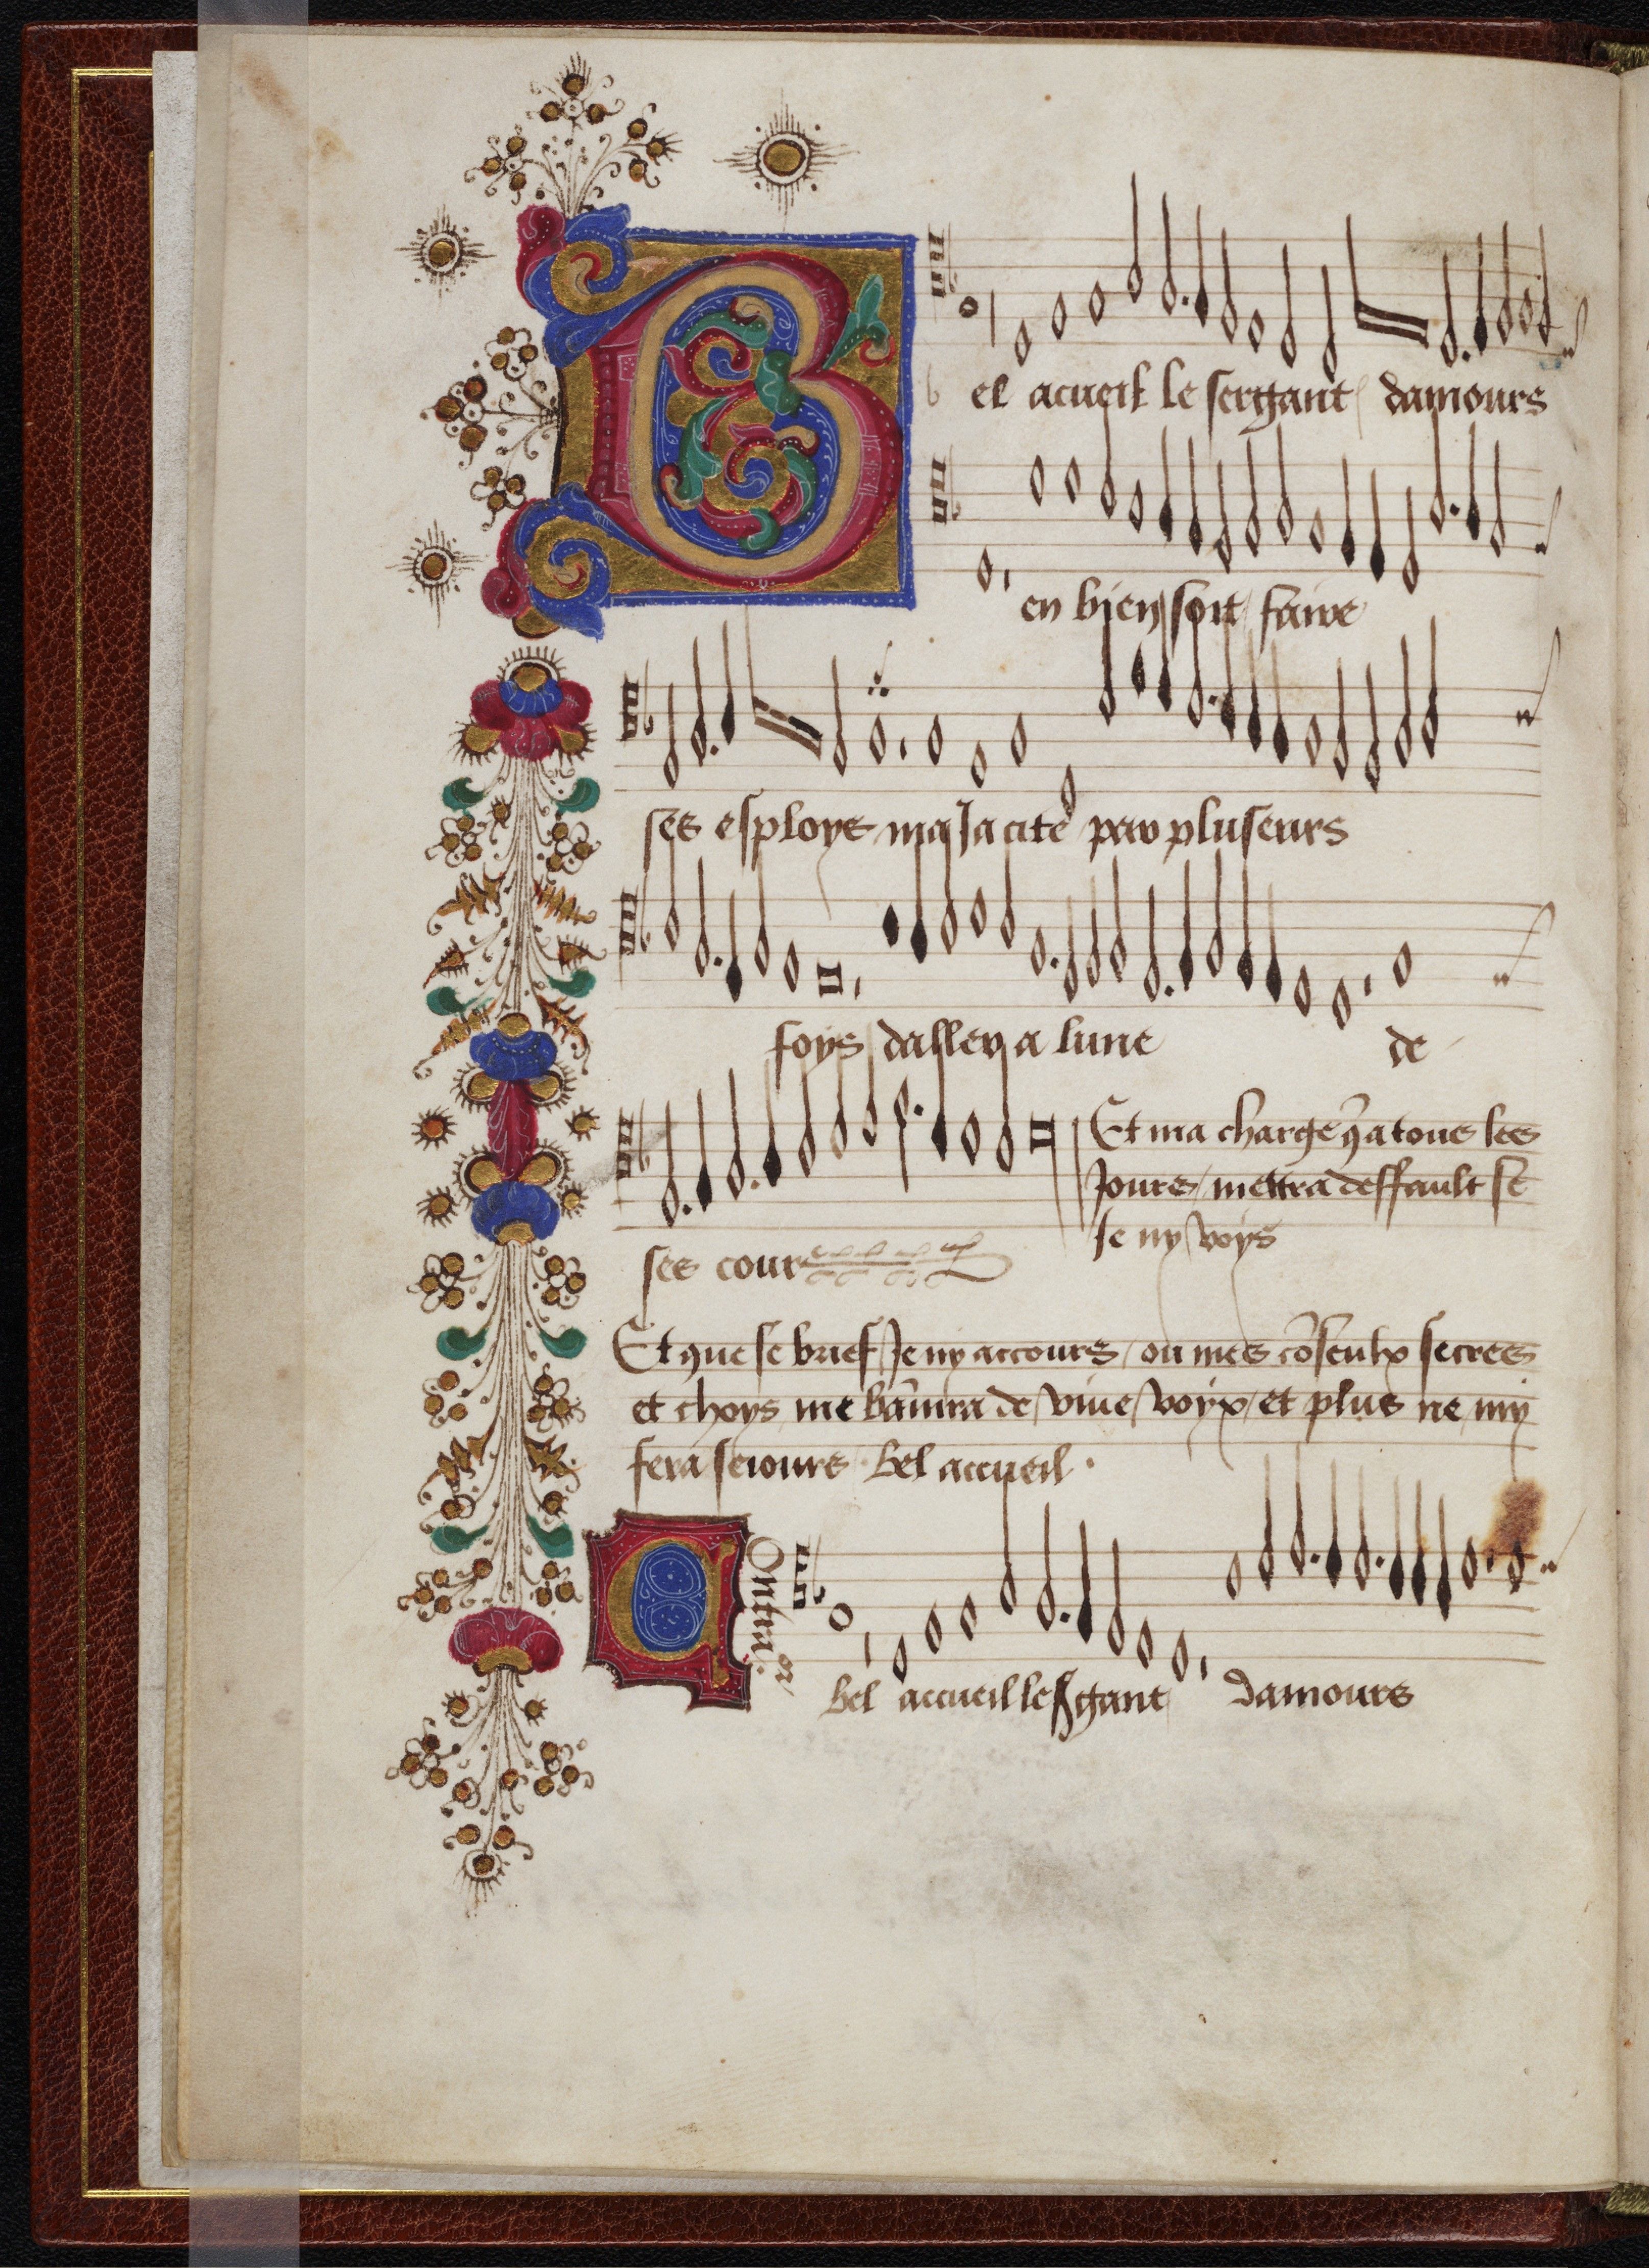 Bel acueil le sergant damours
en bien soit faire
ses esploys ma Ja cite par pluseurs
foys daller a lune de
ses cours
Et ma charge q̃ a tous les
Jours mettra deffault se
Je ny voys
Et que se brief Je ny accours / ou mes cõseulx secres
et choys me bãnira de vive voyx / et plus ne my
fera seiours · bel accueil ·
Contra
bel accueil le sgant damours